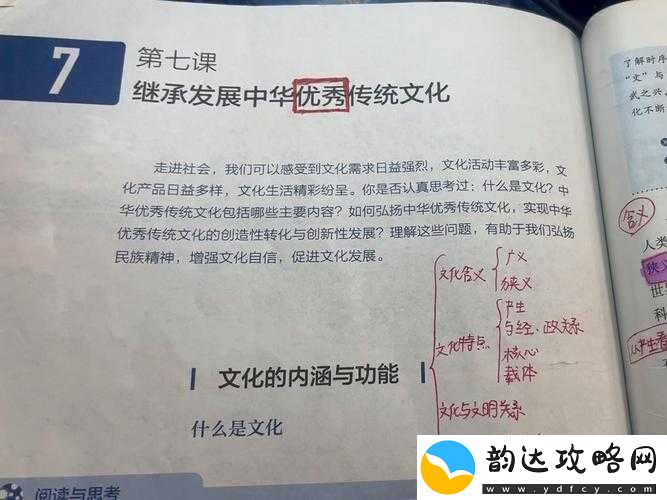 7
第七课
继承发展中华优秀传统文化
走进社会，我们可以感受到文化需求日益强烈，文化活动丰富多彩，文
化产品日益多样，文化生活精彩纷呈。你是否认真思考过：什么是文化？中
华优秀传统文化包括哪些主要内容？如何弘扬中华优秀传统文化，实现中华
优秀传统文化的创造性转化与创新性发展？理解这些问题，有助于我们弘扬
民族精神，增强文化自信，促进文化发展。
文化含义
广义
狭义
文化特点
产生
与经、政关系
核心
载体
文化与文明关系
文化的内涵与功能
什么是文化
阅读与思考
了解时序
“文”与
武之兴，
化不断
含义
人类
狭义
世界
科
从产生看
韵达攻略网
www.ydfcy.com